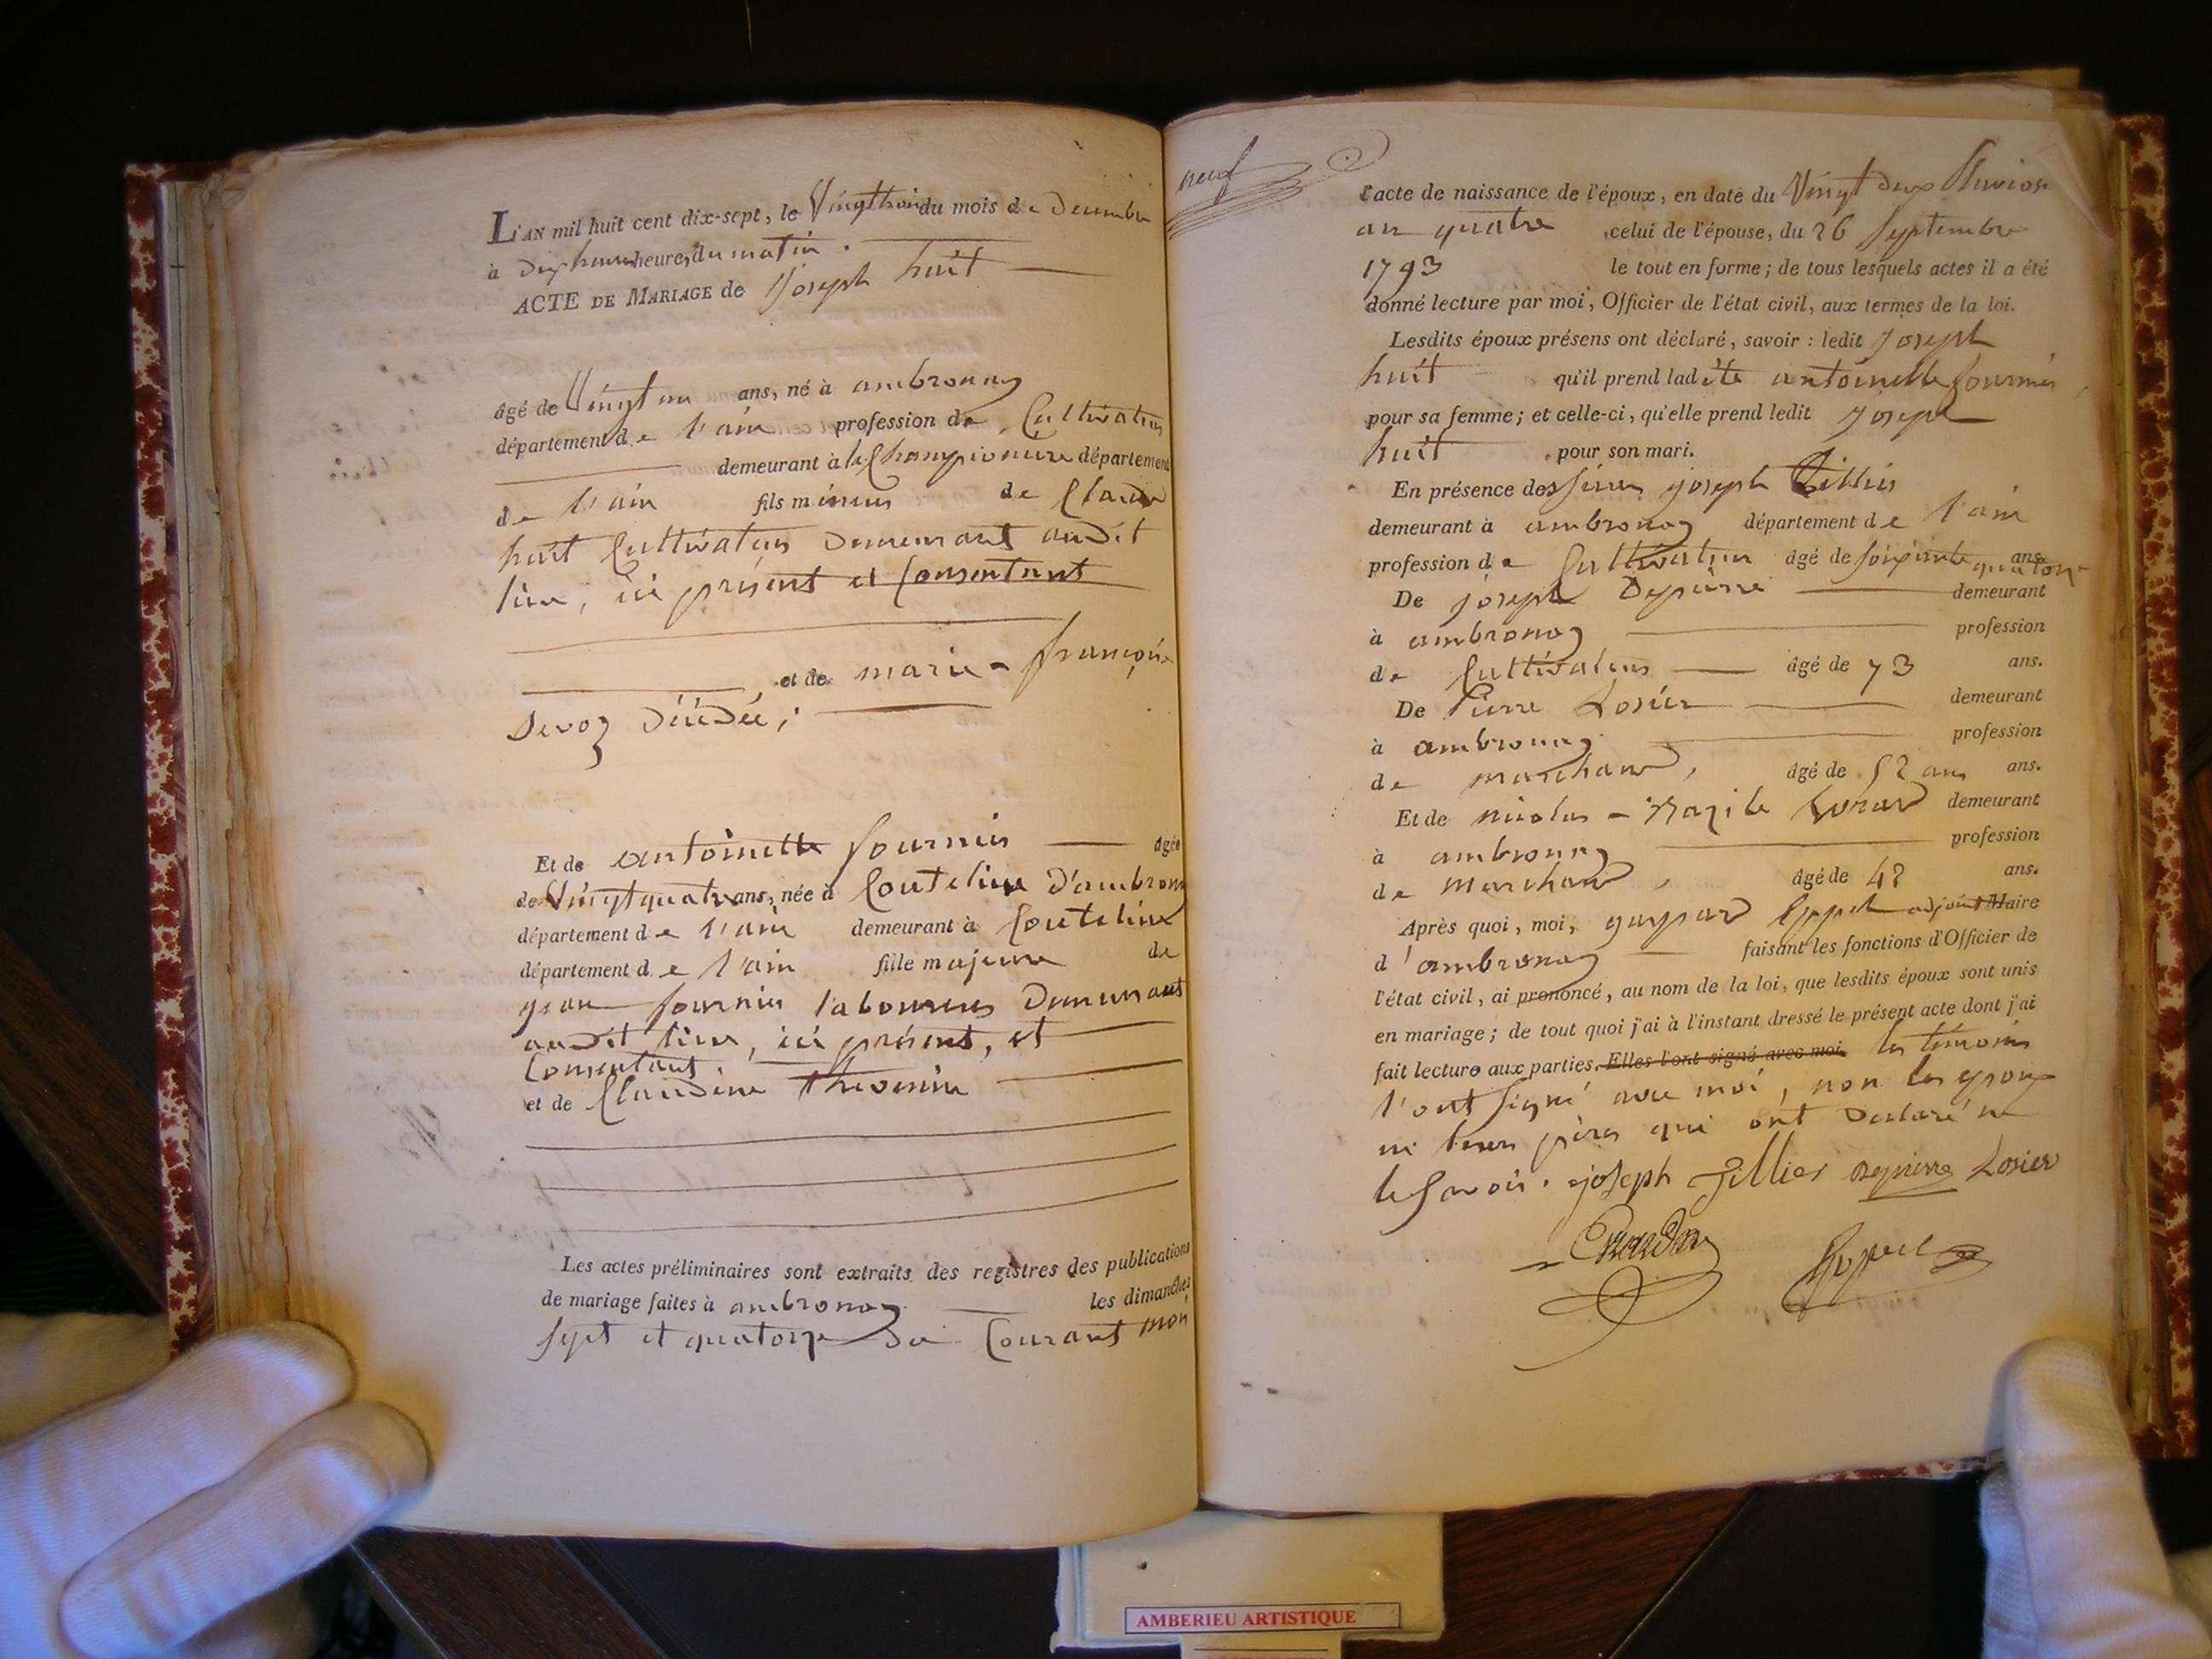 L'AN mil huit cent dix-sept, le Vingt trois du mois de Decembre
à dix heures heure, du matin.
ACTE DE MARIAGE de Joseph huit
âgé de Vingt un ans, né à ambronay
département de l'ain profession de Cultivateur
demeurant à la Championniere département
de l'ain fils mineur de Claude
huit Cultivateur demeurant audit
lieu, ici présent et Consentant
et de marie-françoise
Devoz décédée;
Et de antoinette fournier âgée
de Vingt quatre ans, née à Coutelieu d'ambronay
département de l'ain demeurant à Coutelieu
département de l'ain fille majeure de
jean fournier laboureur demeurant
audit lieu, ici présent, et
Consentant.
et de Claudine thevenin
Les actes préliminaires sont extraits des registres des publications
de mariage faites à ambronay les dimanches
sept et quatorze du Courant mois
neuf
l'acte de naissance de l'époux, en date du Vingt deux Pluviose
an quatre celui de l'épouse, du 26 Septembre
1793 le tout en forme; de tous lesquels actes il a été
donné lecture par moi, Officier de l'état civil, aux termes de la loi.
Lesdits époux présens ont déclaré, savoir : ledit Joseph
huit qu'il prend ladite antoinette fournier
pour sa femme; et celle-ci, qu'elle prend ledit joseph
huit pour son mari.
En présence des sieurs joseph Tillier
demeurant à ambronay département de l'ain
profession de Cultivateur âgé de soixante quatorze ans.
De joseph Depierre demeurant
à ambronay profession
de Cultivateur âgé de 73 ans.
De Pierre Losier demeurant
à ambronay profession
de marchand, âgé de 52 ans ans.
Et de nicolas-Bazile demeurant
à ambronay profession
de Marchand, âgé de 42 ans.
Après quoi, moi, gaspard adjoint Maire
d'ambronay faisant les fonctions d'Officier de
l'état civil, ai prononcé, au nom de la loi, que lesdits époux sont unis
en mariage; de tout quoi j'ai à l'instant dressé le présent acte dont j'ai
fait lecture aux parties. Elles l'ont signé avec moi. les témoins
l'ont signé avec moi, non les epoux
ni leurs pères qui ont declaré ne
le savoir. joseph Tillier depierre Losier
AMBERIEU ARTISTIQUE